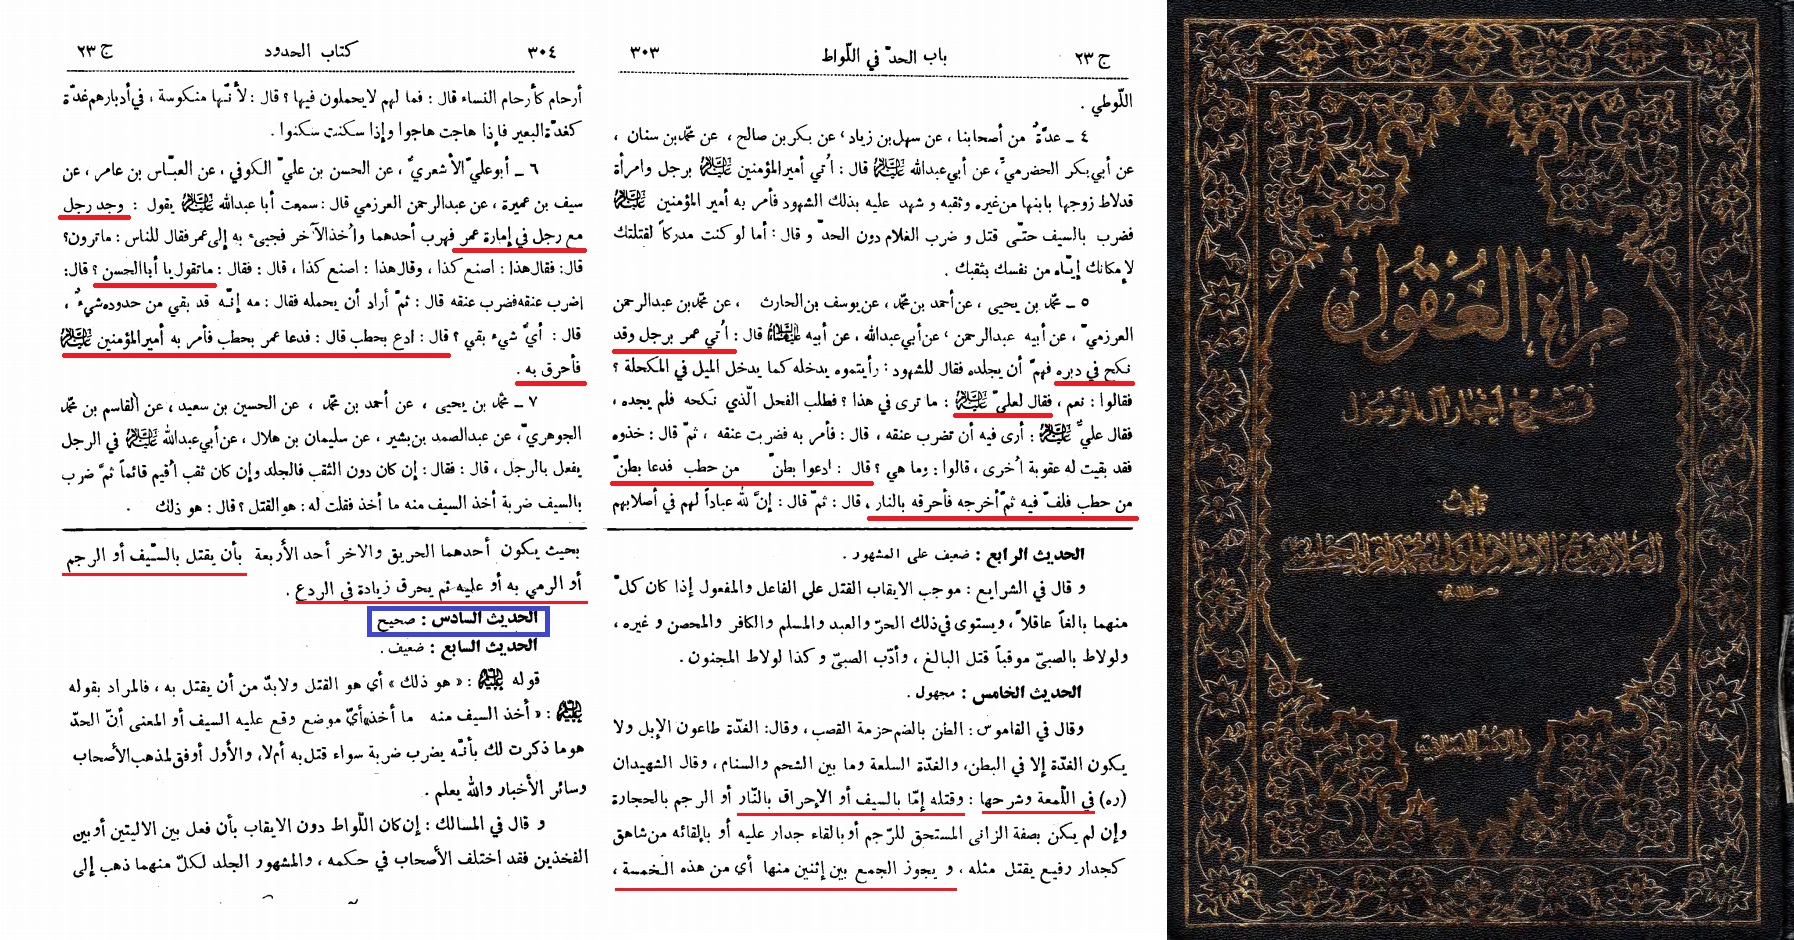 ج ٢٣ باب الحدّ في اللّواط ٣٠٣
اللّوطي .
٤ ــ عدَّةٌ من أصحابنا ، عن سهل بن زياد ، عن بكر بن صالح ، عن محمّد بن سنان ،
عن أبي بكر الحضرميِّ ، عن أبي عبدالله عليه السلام قال : اُتي أميرالمؤمنين عليه السلام برجل وامرأة
قدلاط زوجها بابنها من غيره وثقبه و شهد عليه بذلك الشهود فأمر به أمير المؤمنين عليه السلام
فضرب بالسيف حتّى قتل و ضرب الغلام دون الحدّ و قال : أما لو كنت مدركاً لقتلتك
لإمكانك إيّاه من نفسك بثقبك .
٥ ــ محمّد بن يحيى ، عن أحمد بن محمّد ، عن يوسف بن الحارث ، عن محمّد بن عبدالرحمن
العرزميّ ، عن أبيه عبدالرحمن ، عن أبي عبدالله ، عن أبيه عليهما السلام قال : اُتي عمر برجل وقد
نكح في دبره فهمّ أن يجلده فقال للشهود : رأيتموه يدخله كما يدخل الميل في المكحلة ؟
فقالوا : نعم ، فقال لعليّ عليه السلام : ما ترى في هذا ؟ فطلب الفحل الّذي نكحه فلم يجده ،
فقال عليٌّ عليه السلام : أرى فيه أن تضرب عنقه ، قال : فأمر به فضربت عنقه ، ثمّ قال : خذوه
فقد بقيت له عقوبة اُخرى ، قالوا : وما هي ؟ قال : ادعوا بطنّ من حطب فدعا بطنّ
من حطب فلفّ فيه ثمّ أخرجه فأحرقه بالنار ، قال : ثمّ قال : إنَّ لله عباداً لهم في أصلابهم
الحديث الرابع : ضعيف على المشهور .
و قال في الشرايع : موجب الايقاب القتل على الفاعل والمفعول إذا كان كلّ
منهما بالغاً عاقلاً ، ويستوى في ذلك الحرّ والعبد والمسلم والكافر والمحصن و غيره ،
ولو لاط بالصبيّ موقباً قتل البالغ ، وأدّب الصبيّ و كذا لو لاط المجنون .
الحديث الخامس : مجهول .
وقال في القاموس : الطن بالضم حزمة القصب ، وقال: الغدّة طاعون الإبل ولا
يكون الغدّة إلا في البطن، والغدّة السلعة وما بين الشحم والسنام ، وقال الشهيدان
(ره) في اللّمعة وشرحها : وقتله إمّا بالسيف أو الإحراق بالنّار أو الرجم بالحجارة
وإن لم يكن بصفة الزانى المستحق للرّجم أو بالقاء جدار عليه أو بإلقائه من شاهق
كجدار رفيع يقتل مثله ، و يجوز الجمع بين إثنين منها أي من هذه الخمسة ،
٣٠٤ كتاب الحدود ج ٢٣
أرحام كأرحام النساء قال : فما لهم لايحملون فيها ؟ قال : لأنّها منكوسة ، في أدبارهم غدّة
كغدّة البعير فإذا هاجت هاجوا وإذا سكنت سكنوا .
٦ ــ أبوعليّ الأشعريُّ ، عن الحسن بن عليّ الكوفي ، عن العبّاس بن عامر ، عن
سيف بن عميرة ، عن عبدالرحمن العرزمي قال : سمعت أبا عبدالله عليه السلام يقول : وجد رجل
مع رجل في إمارة عمر فهرب أحدهما واُخذ الآخر فجيىء به إلى عمر فقال للناس : ماترون؟
قال: فقال هذا : اصنع كذا ، وقال هذا : اصنع كذا ، قال : فقال : ماتقول يا أبا الحسن ؟ قال:
اضرب عنقه فضرب عنقه قال : ثمّ أراد أن يحمله فقال : مه إنّه قد بقي من حدوده شيءٌ ،
قال : أيّ شيء بقي ؟ قال : ادع بحطب قال : فدعا عمر بحطب فأمر به أميرالمؤمنين عليه السلام
فأحرق به .
٧ ــ محمّد بن يحيى ، عن أحمد بن محمّد ، عن الحسين بن سعيد ، عن القاسم بن محمّد
الجوهريّ ، عن عبدالصمد بن بشير ، عن سليمان بن هلال ، عن أبي عبدالله عليه السلام في الرجل
يفعل بالرجل ، قال : فقال : إن كان دون الثقب فالجلد وإن كان ثقب اُقيم قائماً ثمَّ ضرب
بالسيف ضربة أخذ السيف منه ما أخذ فقلت له : هو القتل ؟ قال : هو ذلك .
بحيث يكون أحدهما الحريق والاخر أحد الأربعة بأن يقتل بالسّيف أو الرجم
أو الرمي به أو عليه ثم يحرق زيادة في الردع .
الحديث السادس : صحيح
الحديث السابع : ضعيف .
قوله عليه السلام : « هو ذلك » أي هو القتل ولابدّ من أن يقتل به ، فالمراد بقوله
عليه السلام : « أخذ السيف منه ما أخذ» أيّ موضع وقع عليه السيف أو المعنى أنّ الحدّ
هو ما ذكرت لك بأنّه يضرب ضربة سواء قتل به أم لا، والأول أوفق لمذهب الأصحاب
وسائر الأخبار والله يعلم .
و قال في المسالك : إن كان اللّواط دون الايقاب بأن فعل بين الاليتين أو بين
الفخذين فقد اختلف الأصحاب في حكمه ، والمشهور الجلد لكلّ منهما ذهب إلى
مرآة العقول
في شرح أخبار آل الرسول
تأليف
العلامة شيخ الإسلام المولى محمد باقر المجلسي
دار الكتب الإسلامية